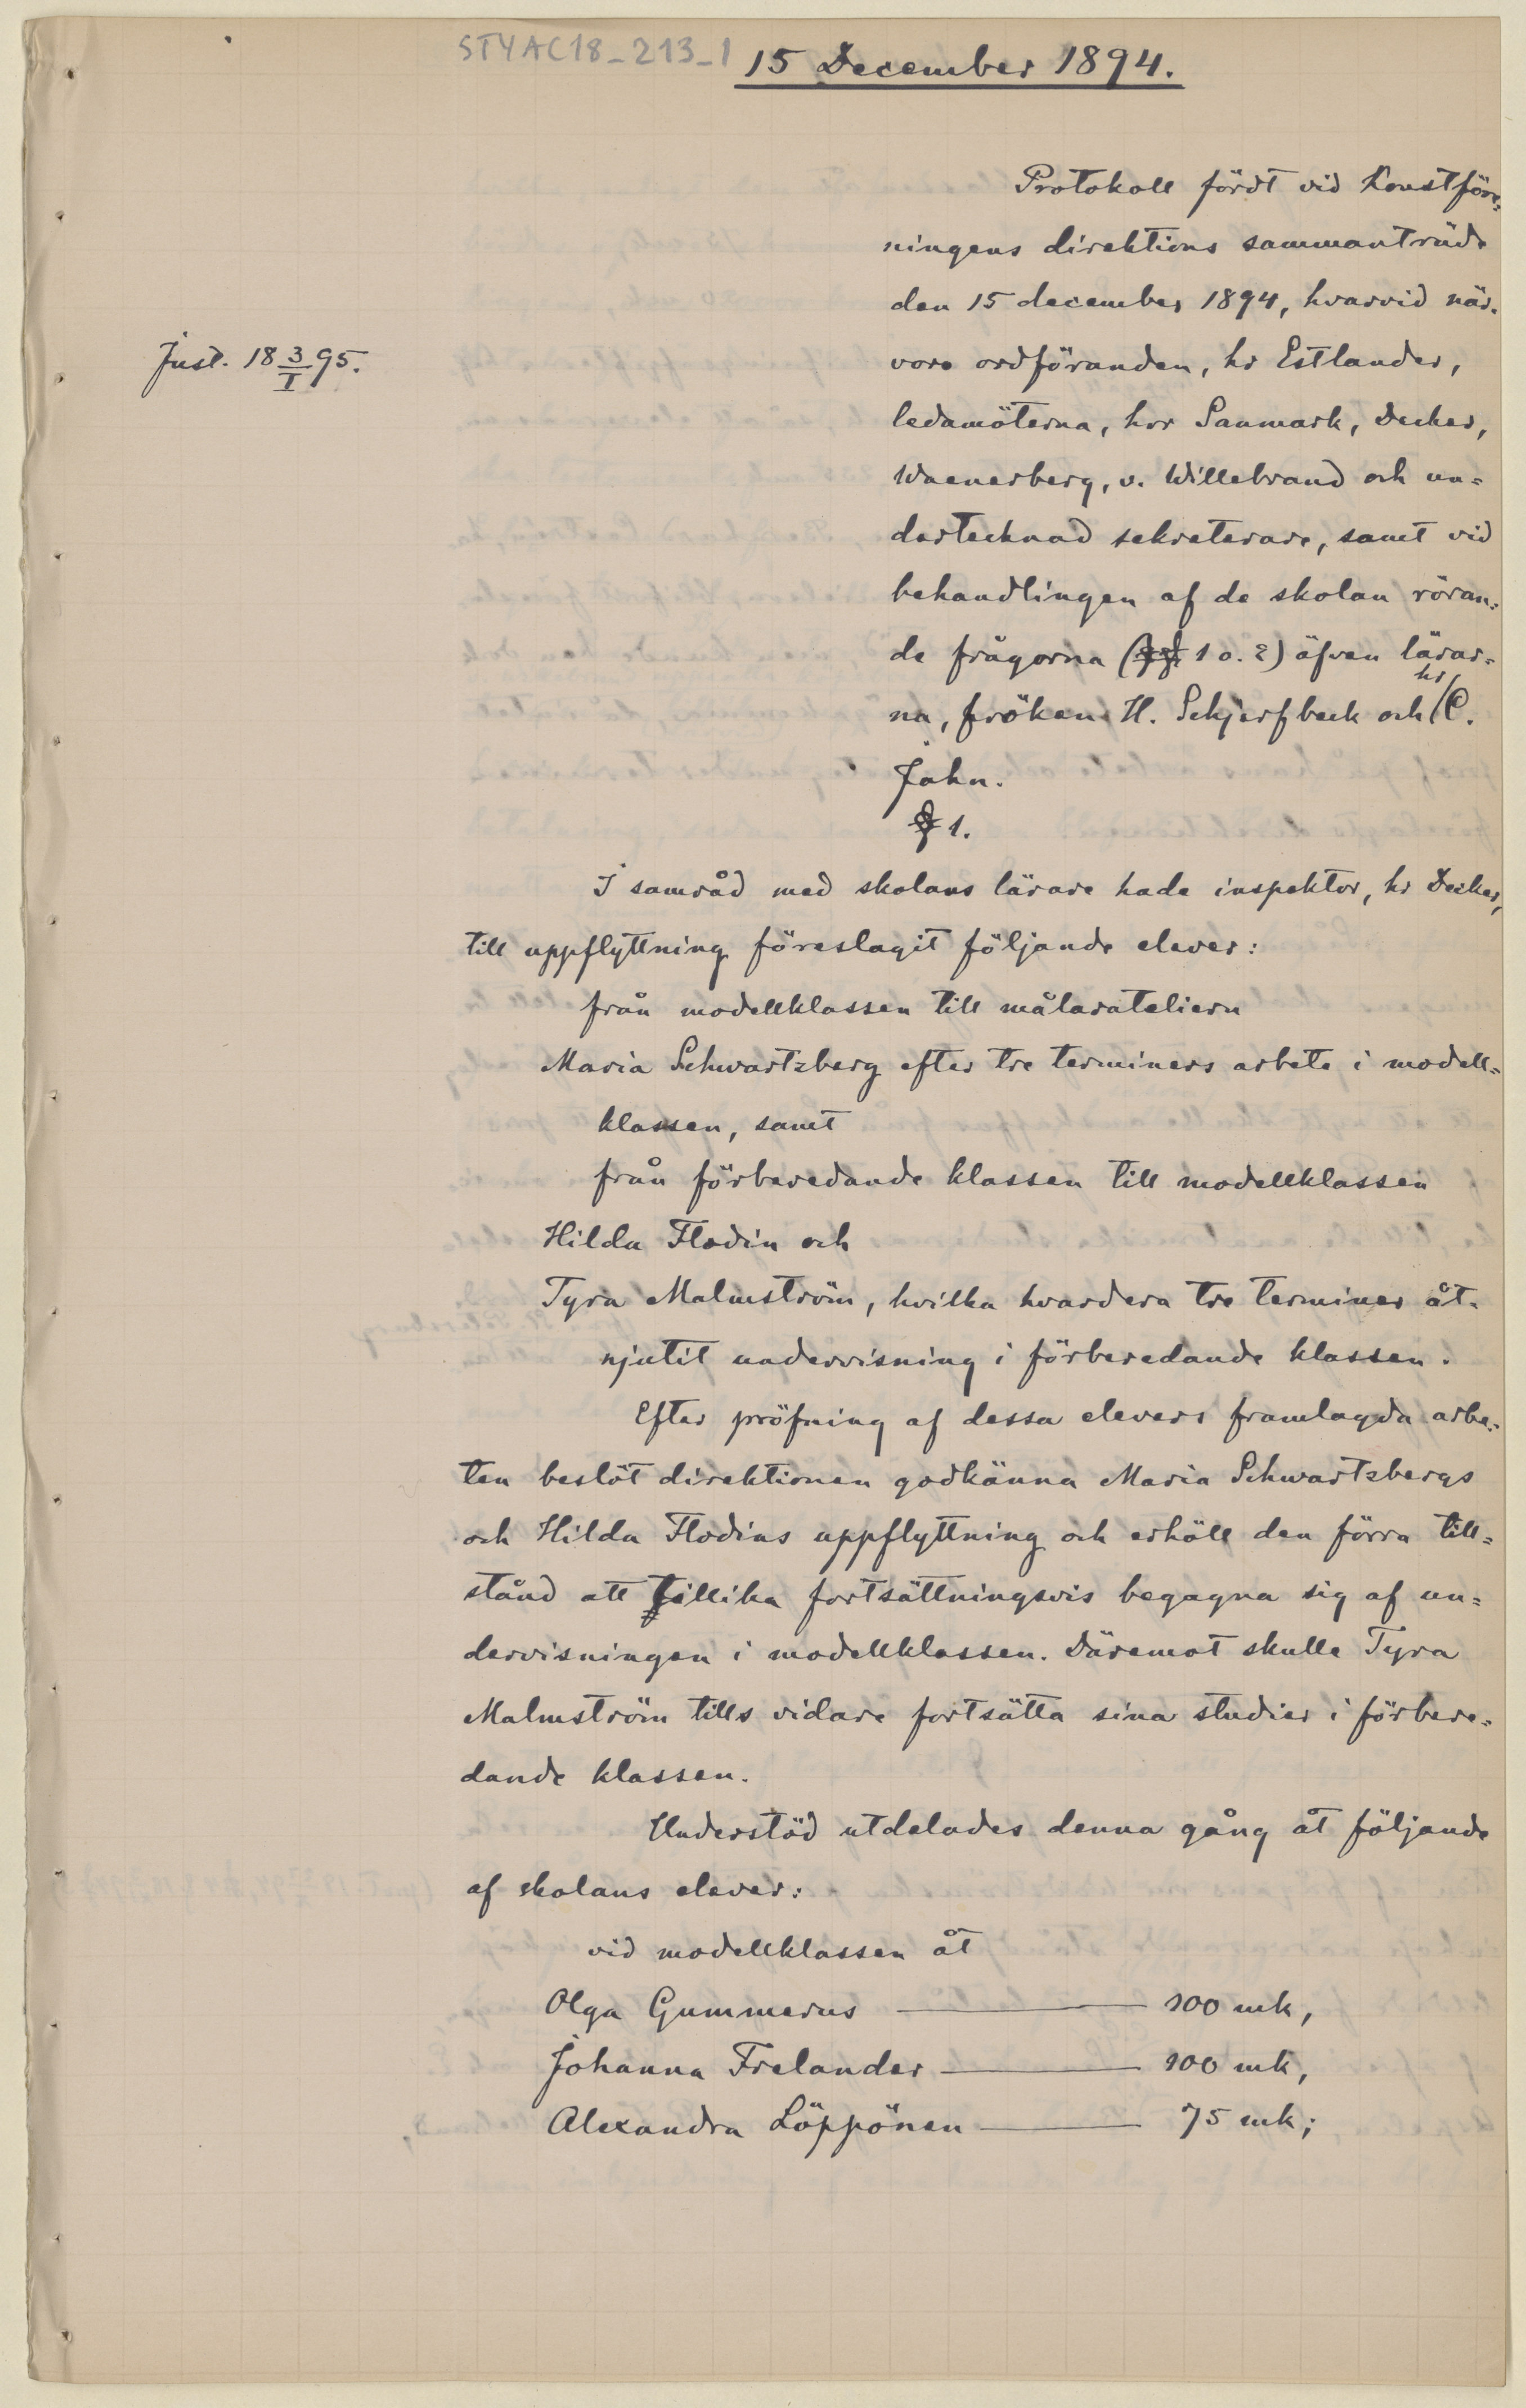 STYAC18_213_1
15 December 1894.
Protokoll fördt vid Konstföre=
ningens direktions sammanträde
den 15 december 1894, hvarvid när.
Just. 18 3/I 95.
voro ordföranden, hr Estlander,
ledamöterna, hrr Sanmark, Decker,
Waenerberg, v. Willebrand och un=
dertecknad sekreterare, samt vid
behandlingen af de skolan röran=
de frågorna (§§ 1 o. 2) äfven lärar=
na, fröken H. Schjerfbeck och hr C.
Jahn.
§ 1.
I samråd med skolans lärare hade inspektor, hr Decker,
till uppflyttning föreslagit följande elever:
från modellklassen till målarateliern
Maria Schwartzberg efter tre terminers arbete i modell=
klassen, samt
från förberedande klassen till modellklassen
Hilda Flodin och
Tyra Malmström, hvilka hvardera tre terminer åt.
njutit undervisning i förberedande klassen.
Efter pröfning af dessa elevers framlagda arbe.
ten beslöt direktionen godkänna Maria Schwartzbergs
och Hilda Flodins uppflyttning och erhöll den förra till=
stånd att tillika fortsättningsvis begagna sig af un=
dervisningen i modellklassen. Däremot skulle Tyra
Malmström tills vidare fortsätta sina studier i förbere=
dande klassen.
Understöd utdelades denna gång åt följande
af skolans elever:
vid modellklassen åt
Olga Gummerus — 100 mk,
Johanna Frelander — 100 mk,
Alexandra Löppönen — 75 mk;